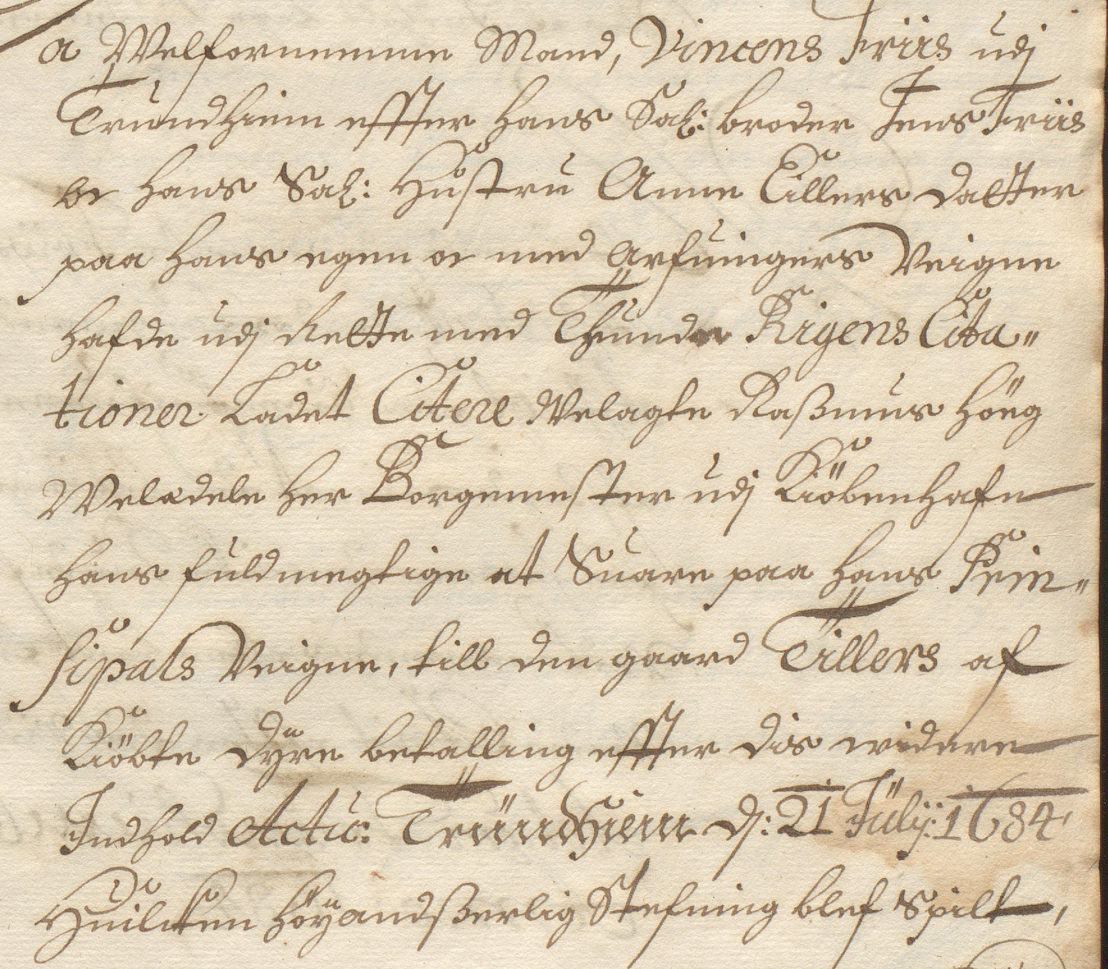 a Welfornemme Mand, Vincens Friis udj
Trundhiem effter hans Sal: broder Jens Friis
oc hans Sal: Hustru Anne Eillers datter
paa hans egen oc med arfuingers Veigne
hafde udj Rette med Thunde Rigens Cita-
tioner Ladet Citere Velagte Raßmus Höeg
Welædele her Borgemester udj Kiöbenhafn
hans fuldmegtige at Suare paa hans Prin-
sipals Veigne, till den gaard Tillers af
Kiöbte dyre betalling effter dis widere
Indhold Actu: Trundhiem d: 21 Julij: 1684
Huilcken höyandßerlig Stefning blef Spilt,